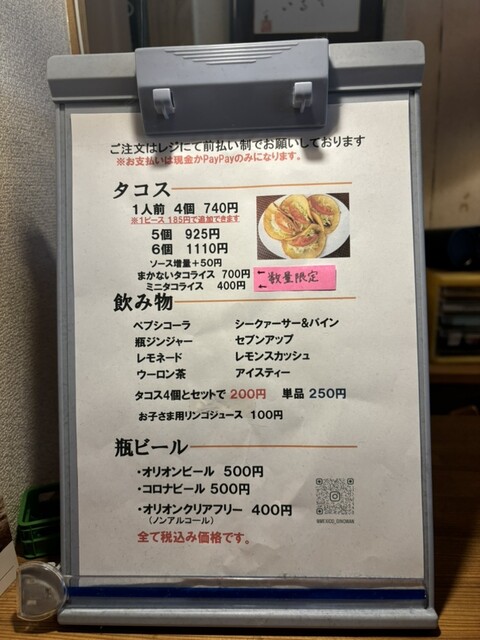 ご注文はレジにて前払い制でお願いしております
※お支払いは現金かPayPayのみになります。
タコス
1人前 4個 740円
※1ピース 185円で追加できます
5個 925円
6個 1110円
ソース増量+50円
まかないタコライス 700円 ←
ミニタコライス 400円 ←
数量限定
飲み物
ペプシコーラ シークァーサー&パイン
瓶ジンジャー セブンアップ
レモネード レモンスカッシュ
ウーロン茶 アイスティー
タコス4個とセットで 200円 単品 250円
お子さま用リンゴジュース 100円
瓶ビール
・オリオンビール 500円
・コロナビール 500円
・オリオンクリアフリー 400円
(ノンアルコール)
全て税込み価格です。